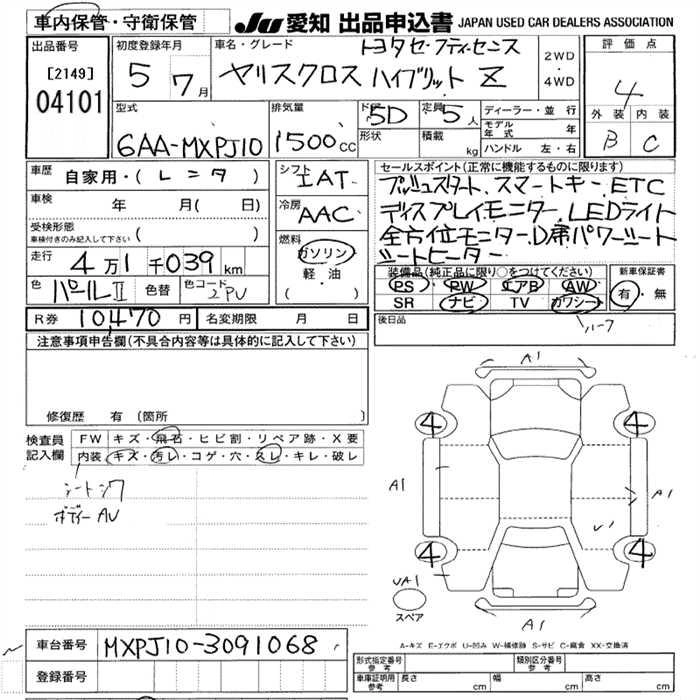 車内保管・守衛保管
JU 愛知 出品申込書 JAPAN USED CAR DEALERS ASSOCIATION
出品番号
[2149]
04101
初度登録年月
5 7月
車名・グレード
トヨタセーフティセンス
ヤリスクロス ハイブリット Z
2WD
・
4WD
評価点
4
外装 内装
B C
型式
6AA-MXPJ10
排気量
1500cc
ドア
5D
形状
定員
5人
積載
kg
ディーラー・並行
モデル年式 年
ハンドル 左・右
車歴
自家用・(レンタ)
車検 年 月( 日)
受検形態
車検付きのみ記入して下さい ( )
走行 4万1千039km
色 パールII 色替 色コード 2PU
R券 10,470円 名変期限 月 日
シフト
IAT
冷房
AAC
燃料
ガソリン
軽・油
( )
セールスポイント(正常に機能するものに限ります)
プッシュスタート、スマートキー、ETC
ディスプレイモニター、LEDライト
全方位モニター、D席パワーシート
シートヒーター
装備品(純正品に限り○をつけてください)
PS PW エアB AW
SR ナビ TV カワシート
ハーフ
新車保証書
有・無
後日品
注意事項申告欄(不具合内容等は具体的に記入して下さい)
修復歴 有(箇所
検査員
記入欄
FW キズ・飛石・ヒビ割・リペア跡・X要
内装 キズ・汚レ・コゲ・穴・スレ・キレ・破レ
シートシワ
ボディーAU
A1
4 4
A1 A1
U1
4 4
UA1
スペア
A1
A-キズ E-エクボ U-凹み W-補修跡 S-サビ C-腐食 XX-交換済
車台番号 MXPJ10-3091068
登録番号
形式指定番号
参考
類別区分番号
参考
車庫証明用
参考
長さ cm 幅 cm 高さ cm